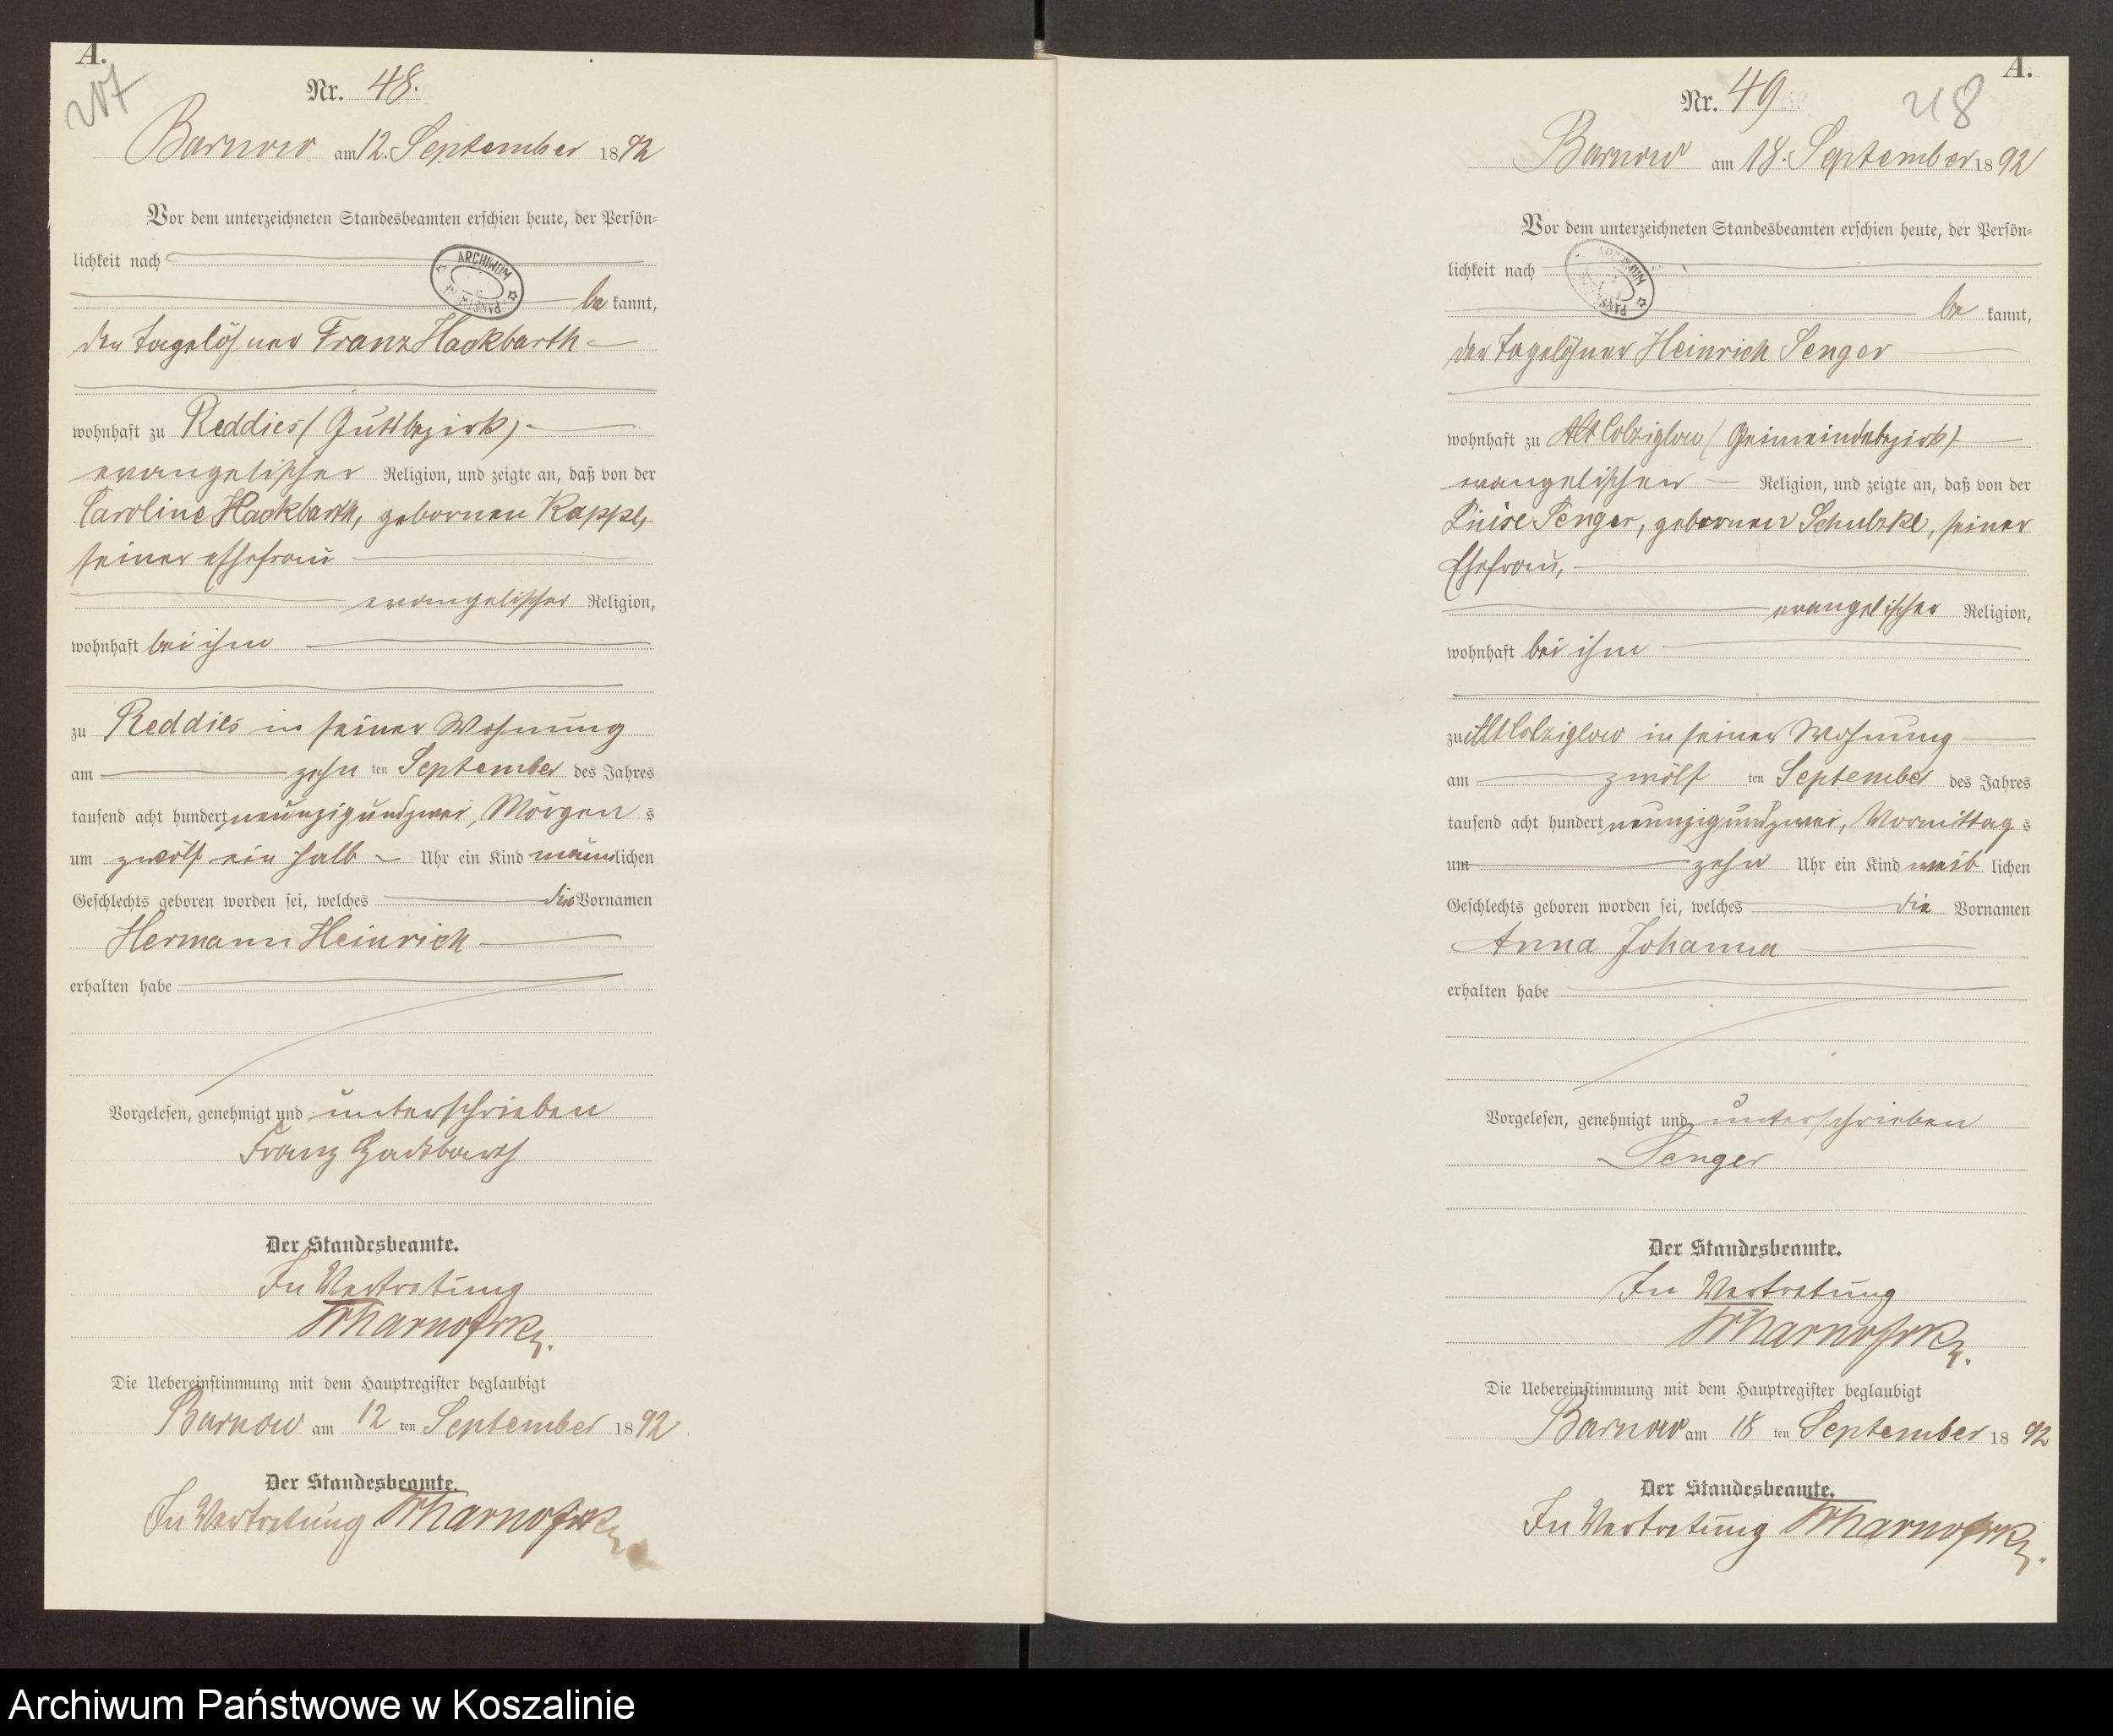 A.
217
Nr. 48.
Barnow am 12. September 1892
Vor dem unterzeichneten Standesbeamten erschien heute, der Persön-
lichkeit nach
ARCHIWUM
bekannt,
der Tagelöhner Franz Hackbarth
wohnhaft zu Reddies (Gutsbezirk)
evangelischer Religion, und zeigte an, daß von der
Caroline Hackbarth, gebornen Kappe,
seiner Ehefrau
evangelischer Religion,
wohnhaft bei ihm
zu Reddies in seiner Wohnung
am zehn ten September des Jahres
tausend acht hundert neunzig und zwei, Morgens
um zwölf ein halb Uhr ein Kind männlichen
Geschlechts geboren worden sei, welches die Vornamen
Hermann Heinrich
erhalten habe
Vorgelesen, genehmigt und unterschrieben
Franz Hackbarth
Der Standesbeamte.
In Vertretung
Die Uebereinstimmung mit dem Hauptregister beglaubigt
Barnow am 12 ten September 1892
Der Standesbeamte.
In Vertretung
A.
218
Nr. 49
Barnow am 18. September 1892
Vor dem unterzeichneten Standesbeamten erschien heute, der Persön-
lichkeit nach
bekannt,
der Tagelöhner Heinrich Senger
wohnhaft zu Alt Colziglow (Gemeindebezirk)
evangelischer Religion, und zeigte an, daß von der
Luise Senger, gebornen Schulzke, seiner
Ehefrau,
evangelischer Religion,
wohnhaft bei ihm
zu Alt Colziglow in seiner Wohnung
am zwölf ten September des Jahres
tausend acht hundert neunzig und zwei, Vormittags
um zehn Uhr ein Kind weiblichen
Geschlechts geboren worden sei, welches die Vornamen
Anna Johanna
erhalten habe
Vorgelesen, genehmigt und unterschrieben
Senger
Der Standesbeamte.
In Vertretung
Die Uebereinstimmung mit dem Hauptregister beglaubigt
Barnow am 18 ten September 1892
Der Standesbeamte.
In Vertretung
Archiwum Państwowe w Koszalinie